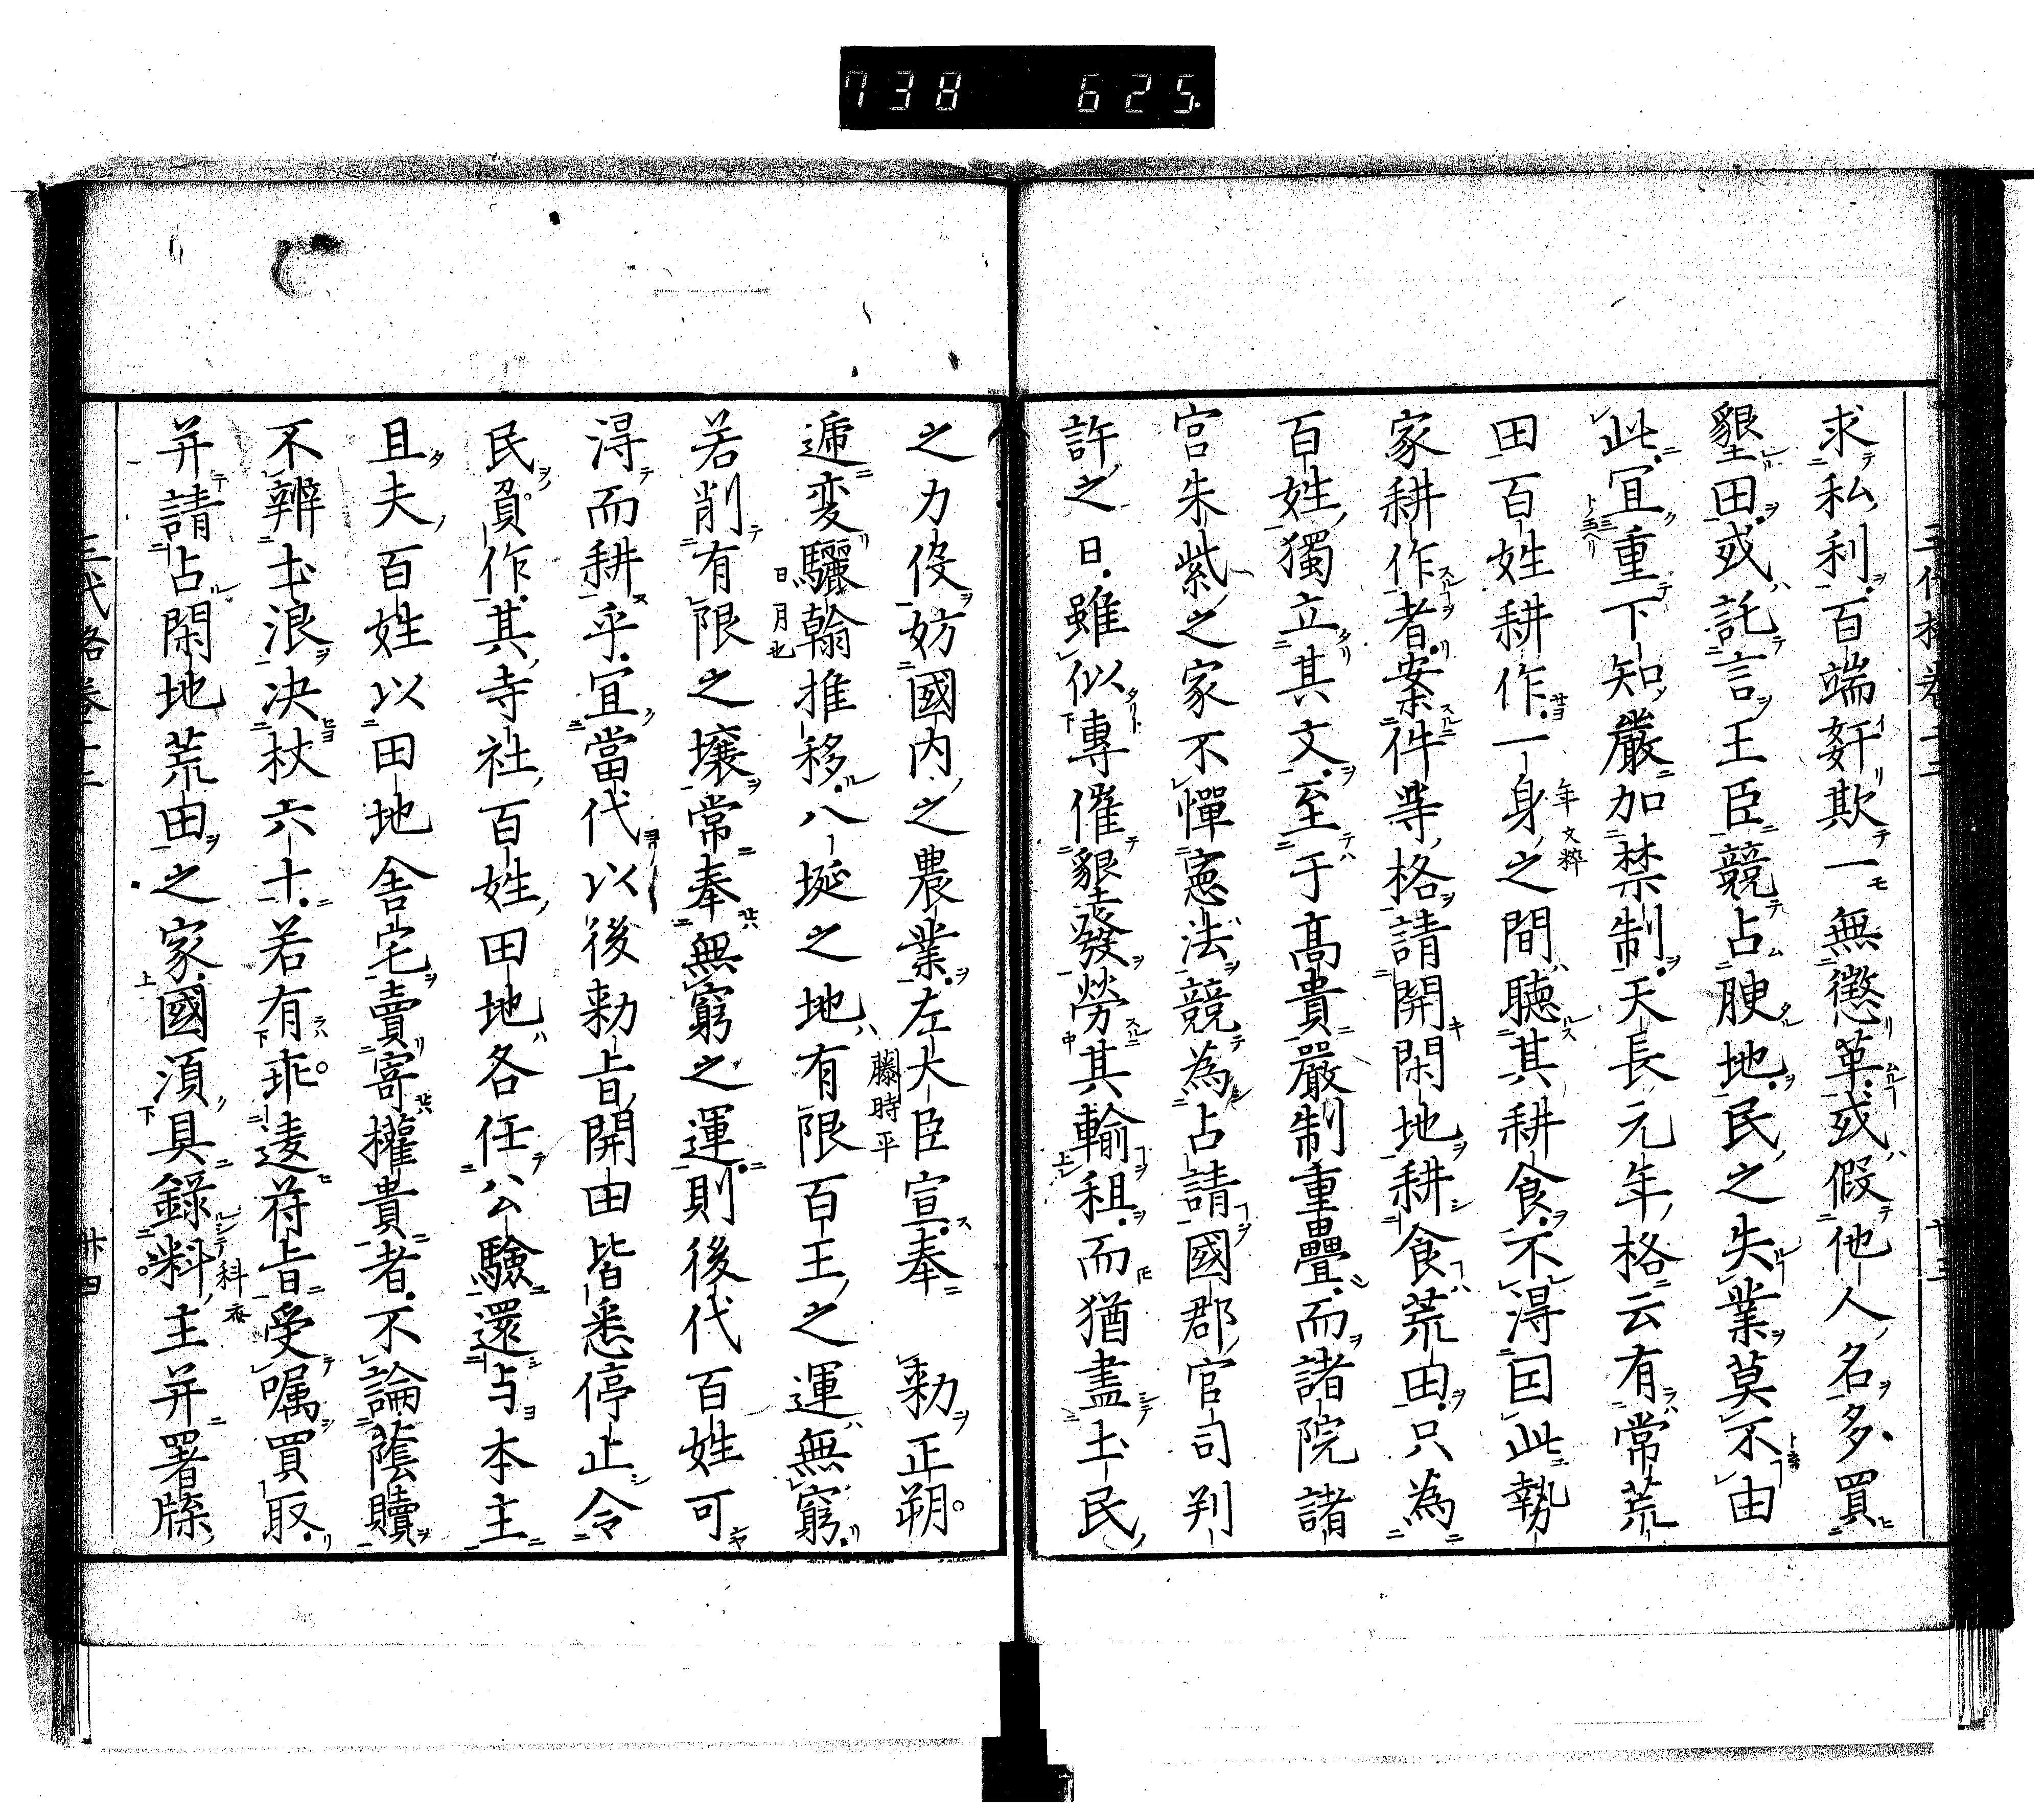 738 625
求私利百端姧欺一無懲革或假他人名多買
墾田或託言王臣競占腴地民之失業莫不由
此宜重下知嚴加禁制天長元年格云有常荒
田百姓耕作一身之間聽其耕食不淂囙此勢
年文粹
家耕作者案件等格請開閑地耕食荒田只為
百姓獨立其文至于髙貴嚴制重疊而諸院諸
宮朱紫之家不憚憲法競為占請國郡官司判
許之日雖似專催墾發勞其輸租而猶盡土民
之力役妨國内之農業左大臣宣奉 勑正朔
藤時平
遞変驪翰推移八埏之地有限百王之運無窮
日月也
若削有限之壌常奉無窮之運則後代百姓可
淂而耕乎宜當代以後勑旨開田皆悉停止令
民負作其寺社百姓田地各任公驗還与本主
且夫百姓以田地舎宅賣寄權貴者不論蔭贖
不辨土浪决杖六十若有乖違苻旨受嘱買取
并請占閑地荒田之家國湏具錄料主并署牒
科
三代格卷十二 卅四